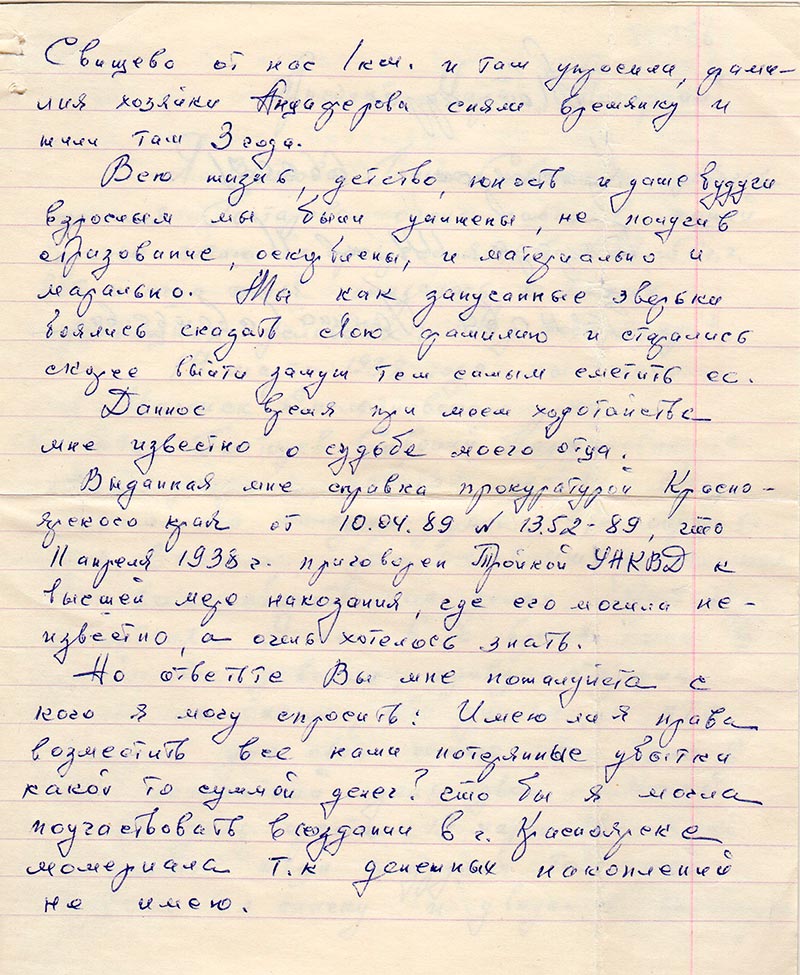 Свищево от нас 1км. и там упросили, фами-
лия хозяйки Андаферова сняли времянку и
жили там 3 года.
Всю жизнь, детство, юность и даже будучи
взрослым мы были унижены, не получив
образование, оскорблены, и материально и
марально. Мы как запуганные зверьки
боялись сказать свою фамилию и старались
скорее выйти замуж тем самым сметить ее.
Данное время при моем ходотайстве
мне известно о судьбе моего отца.
Выданная мне справка прокуратурой Красно-
ярского края от 10.04.89 N 13.52-89, что
11 апреля 1938 г. приговорен Тройкой УНКВД к
высшей мере накозания, где его могила не-
известно, а очень хотелось знать.
Но ответьте Вы мне пожалуйста с
кого я могу спросить: Имею ли я права
возместить все наши потерянные убытки
какой то суммой денег? что бы я могла
поучаствовать в создании в г. Красноярске
момериала т.к денежных накоплений
не имею.